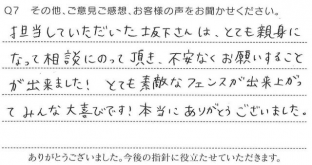 Q7 その他、ご意見ご感想、お客様の声をお聞かせください。
担当していただいた坂下さんは、とても親身に
なって相談にのって頂き、不安なくお願いすること
が出来ました！とても素敵なフェンスが出来上がっ
てみんな大喜びです！本当にありがとうございました。
ありがとうございました。今後の指針に役立たせていただきます。